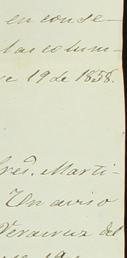 en conse-
las colum-
19 de 1858.
Martí-
Un aviso
Veracruz del